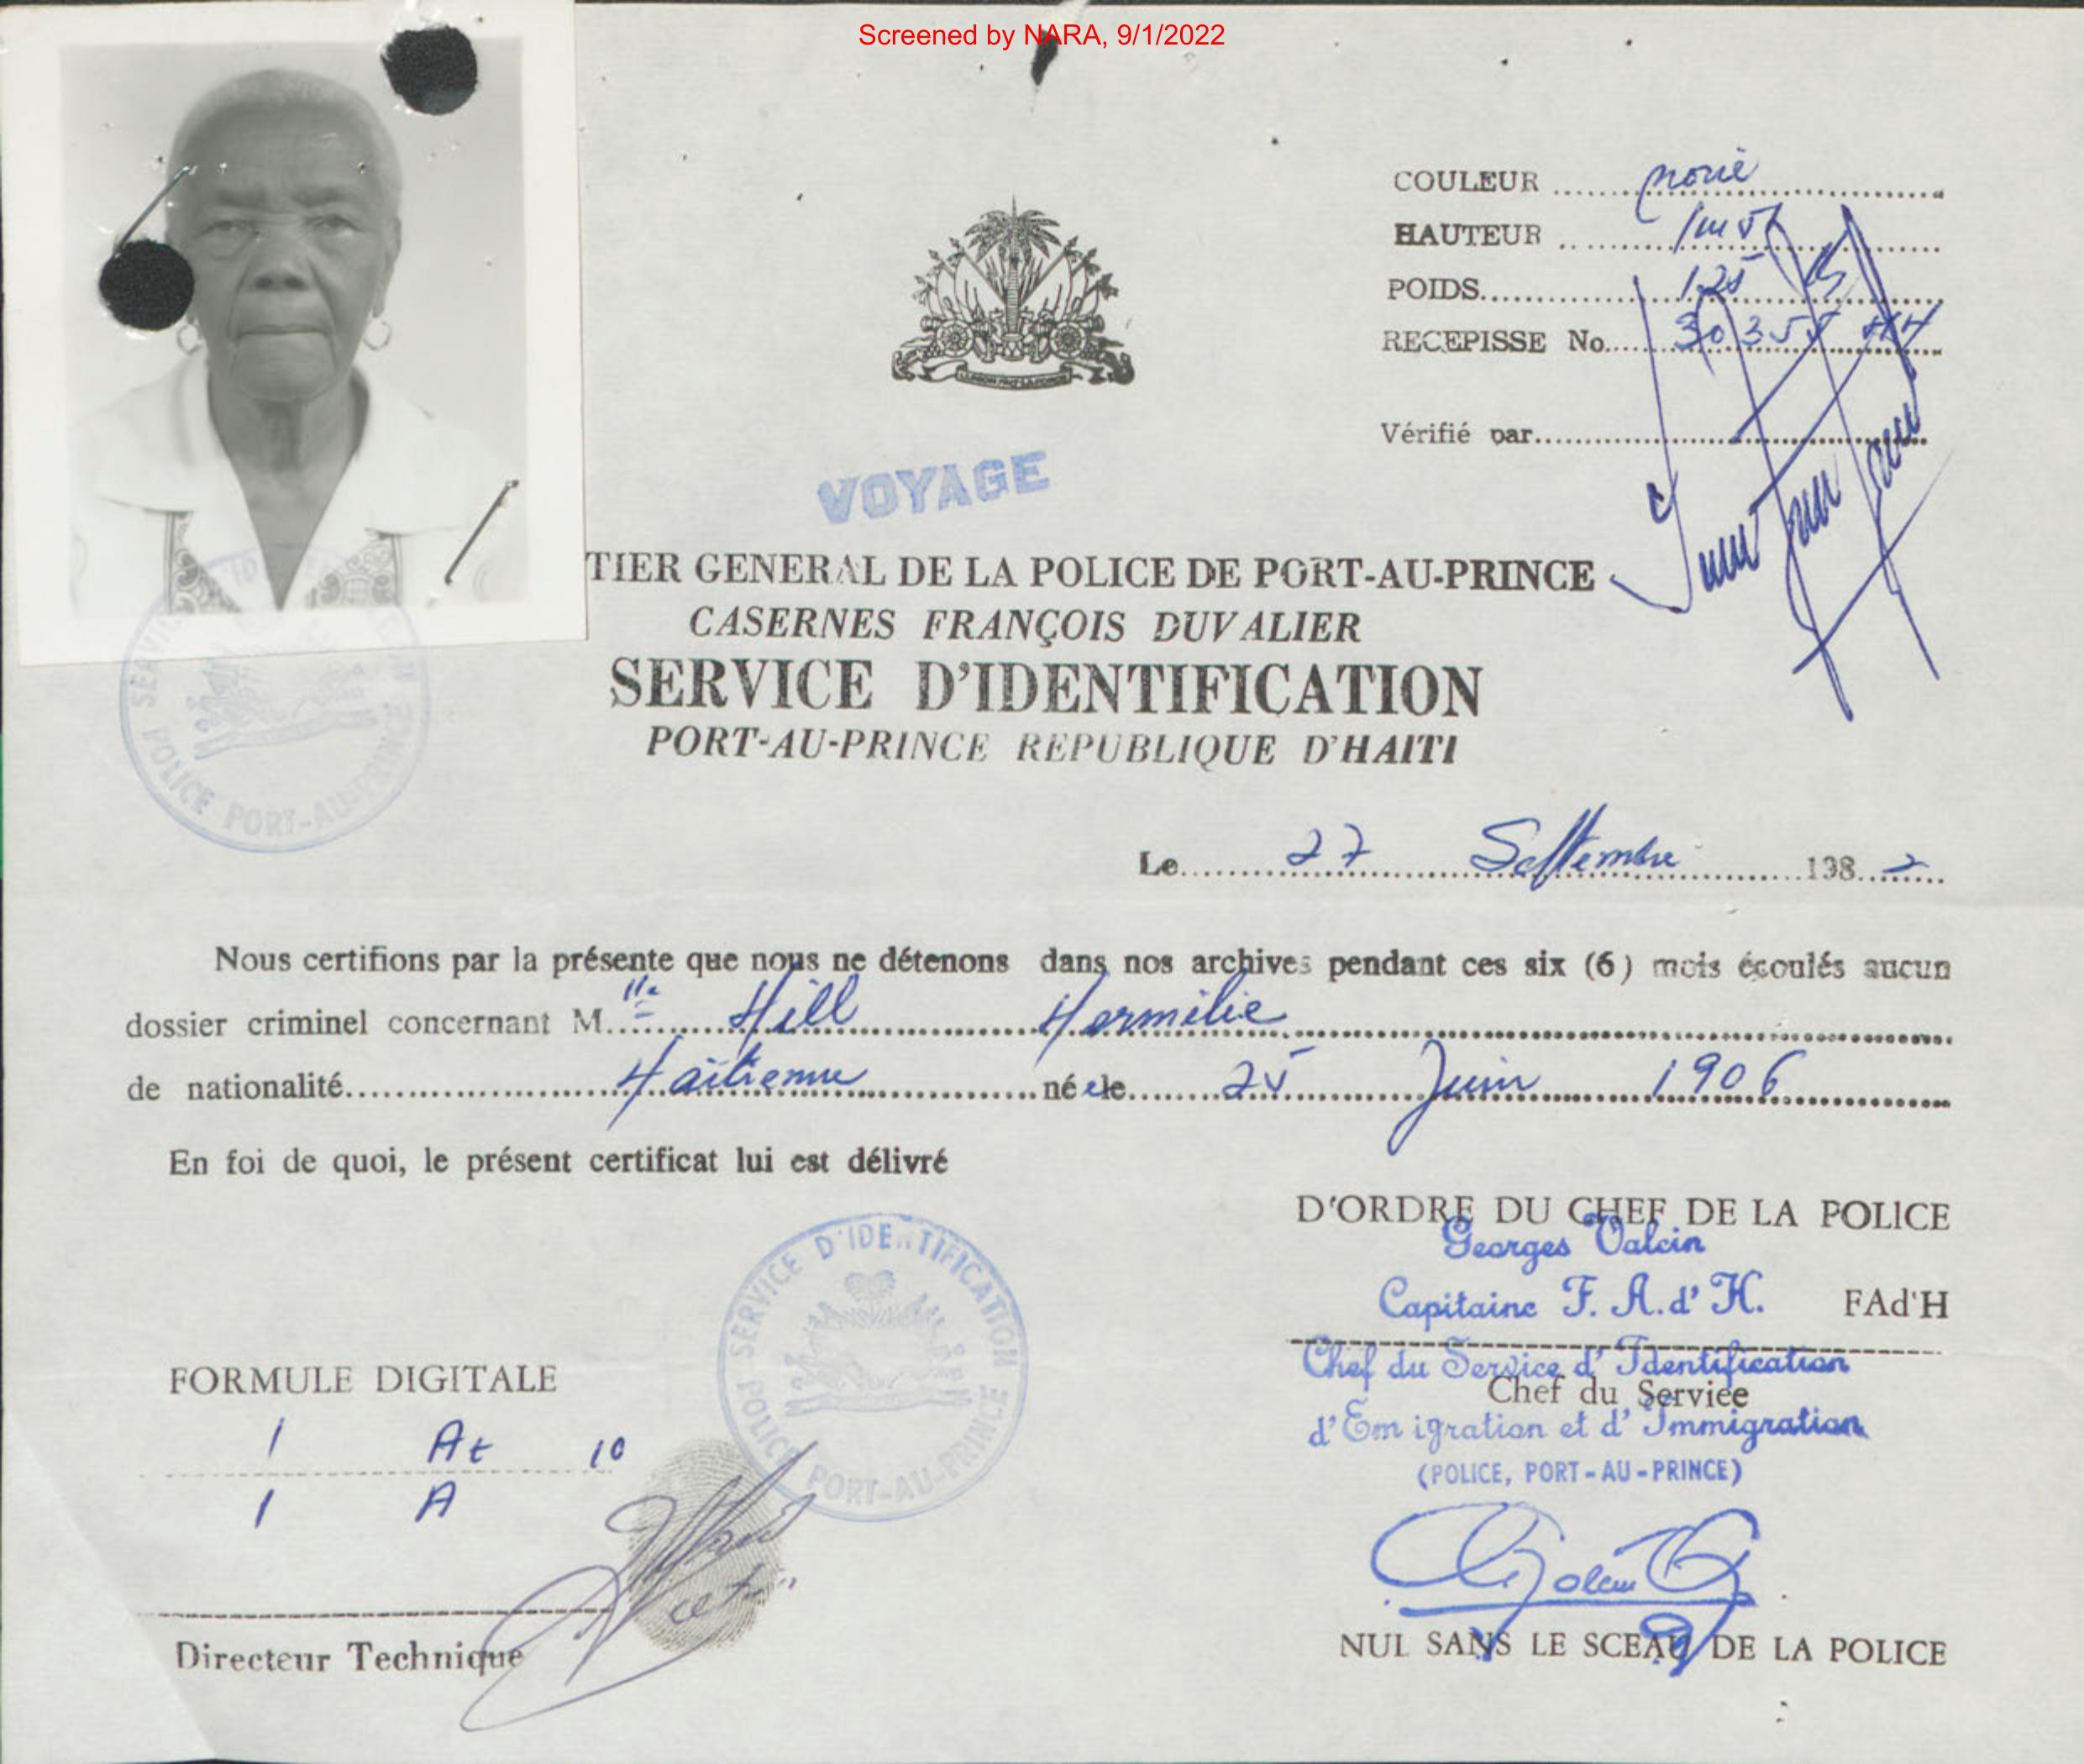 Screened by NARA, 9/1/2022
COULEUR noire
HAUTEUR
POIDS 125
RECEPISSE No. 30355 HH
Vérifié par
VOYAGE
TIER GENERAL DE LA POLICE DE PORT-AU-PRINCE
CASERNES FRANÇOIS DUVALIER
SERVICE D'IDENTIFICATION
PORT-AU-PRINCE REPUBLIQUE D'HAITI
SERVICE
POLICE PORT-AU-PRINCE
Le 27 Septembre 198 2
Nous certifions par la présente que nous ne détenons dans nos archives pendant ces six (6) mois écoulés aucun
dossier criminel concernant M lle Hill Hermilie
de nationalité Haïtienne née le 25 Juin 1906
En foi de quoi, le présent certificat lui est délivré
D'ORDRE DU CHEF DE LA POLICE
Georges Valcin
Capitaine F. A. d' H. FAd'H
Chef du Service d' Identification
Chef du Service
d'Emigration et d' Immigration
(POLICE, PORT-AU-PRINCE)
SERVICE D'IDENTIFICATION
POLICE PORT-AU-PRINCE
FORMULE DIGITALE
1 At 10
1 A
Directeur Technique
NUL SANS LE SCEAU DE LA POLICE